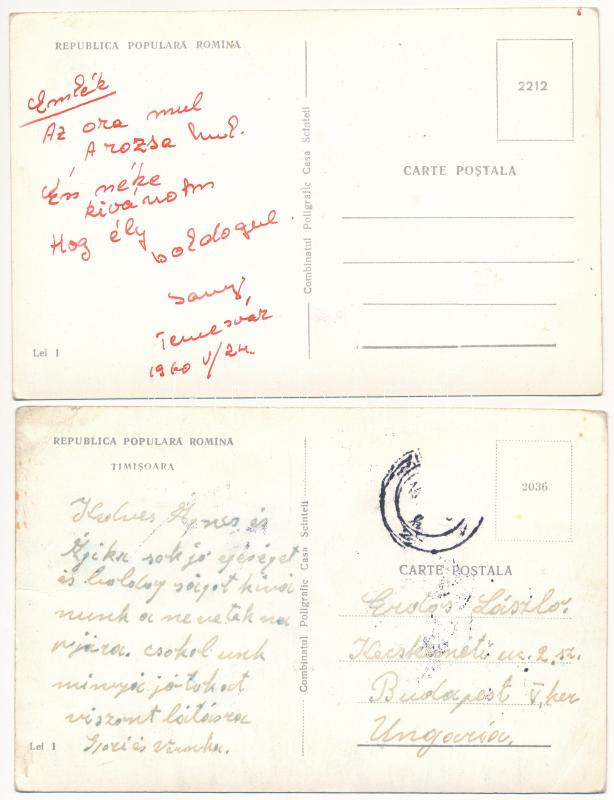 REPUBLICA POPULARĂ ROMÎNĂ
Emlék
Az ora mul
A rozsa hul.
Én néke
kivánom
Hog ély boldogul
Temesvár
1960 V/24.
Lei 1
Combinatul Poligrafic Casa Scînteii
2212
CARTE POȘTALĂ
REPUBLICA POPULARĂ ROMÎNĂ
TIMIȘOARA
Kedves Ágnes és
Ágika sok jó egéséget
és boldog ságot kívá
nunk a nevetek na
pjára. csokol unk
minyá jótokat
viszont látásra
Gori és Veronka.
Lei 1
Combinatul Poligrafic Casa Scînteii
2036
CARTE POȘTALĂ
Erdős László.
Kecskeméti uc. 2. sz.
Budapest V, ker
Ungaria.